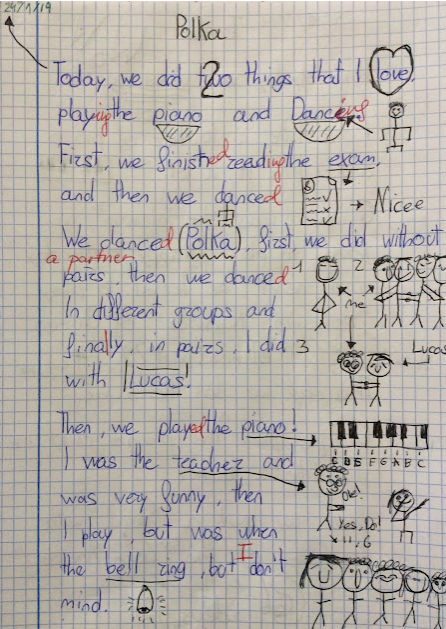 24/1/19
Polka
Today, we did two 2 things that I love,
playing the piano and Dancing
First, we finished reading the exam,
and then we danced → Nicee
We danced (Polka), first, we did without
a partner
pairs, then we danced 1 2
In different groups and me
finally, in pairs, I did 3 Lucas
with Lucas!
Then, we played the piano!
I was the teacher and
was very funny, then Ole!
I play, but was when Yes, Do!
the bell ring, but I don't
mind.